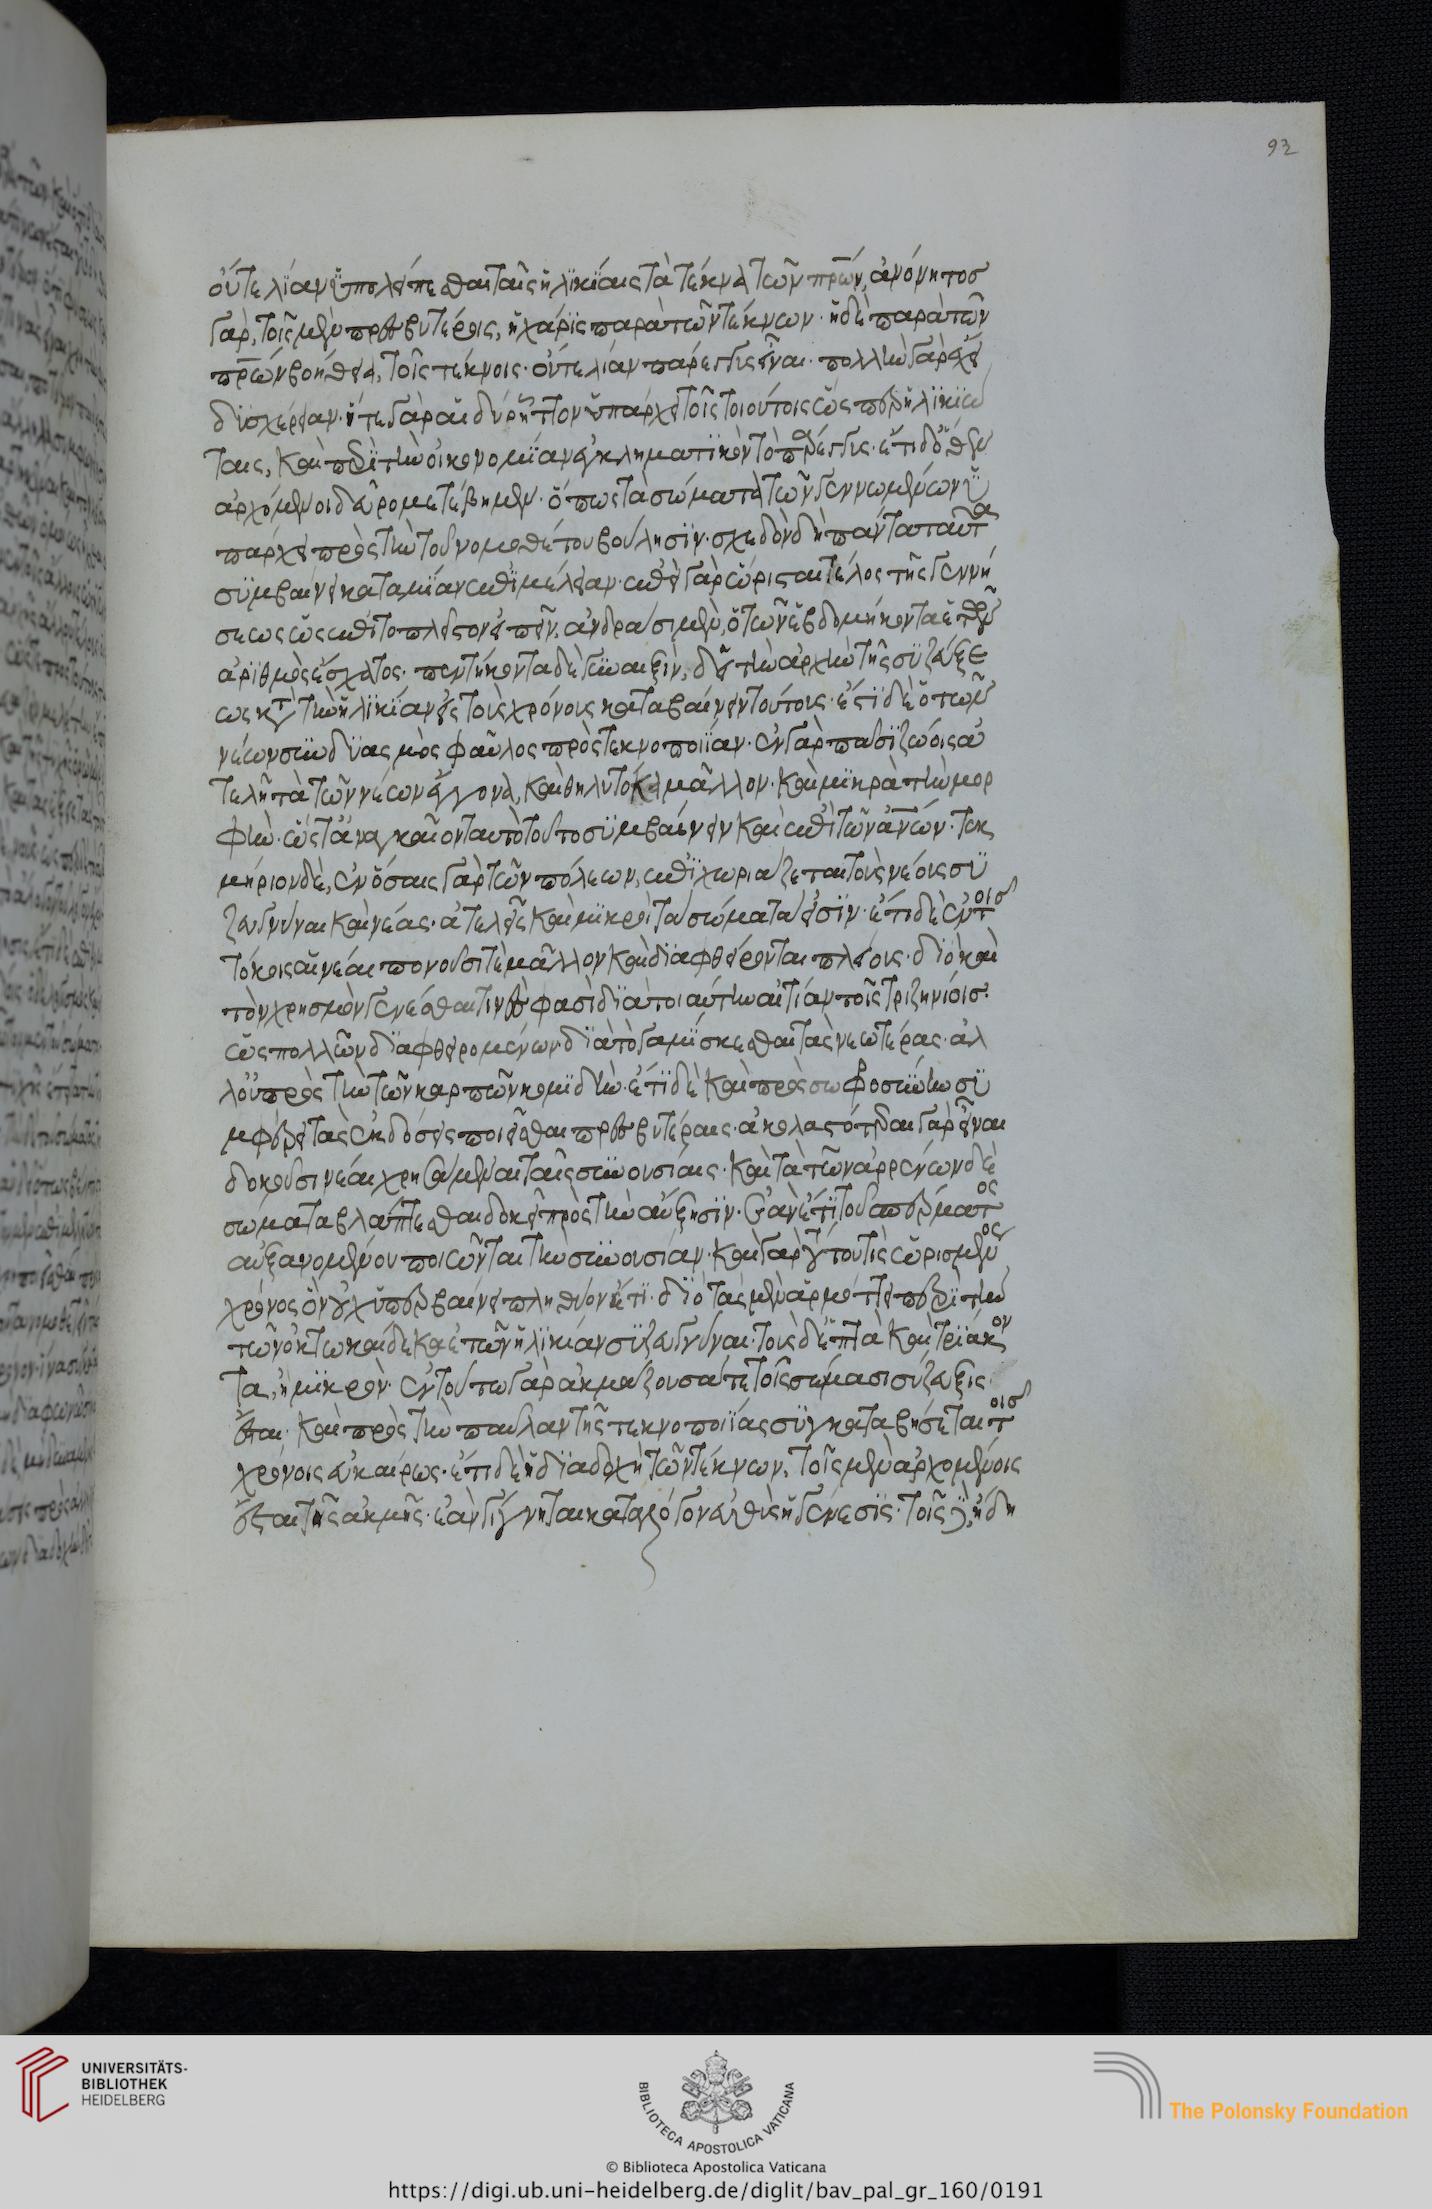 92
οὔτε λίαν ὑπολείπεσθαι ταῖς ἡλικίαις τὰ τέκνα τῶν πρων, ἀνόνητοσ
γαρ, τοῖς μὲν πρεσβυτέροις, ἡ χάρις παρὰ τῶν τέκνων· ἡ δὲ παρὰ τῶν
πρων βοήθεια, τοῖς τέκνοις· οὔτε λίαν πάρεγγυς εἶναι· πολλὴν γὰρ ἔχει
δυσχέρειαν· ἥ τε γὰρ αἰδὼς ἧττον ὑπάρχει τοῖς τοιούτοις ὥσπερ ἡλικιώ
ταις, καὶ περὶ τὴν οἰκονομίαν ἐγκληματικὸν τὸ πάρεγγυς· ἔτι δ ὅθεν
ἀρχόμενοι δεῦρο μετέβημεν· ὅπως τὰ σώματα τῶν γεννωμένων ὑ
πάρχει πρὸς τὴν τοῦ νομοθέτου βούλησιν· σχεδὸν δὴ πάντα ταῦτα
συμβαίνει κατὰ μίαν ἐπιμέλειαν· ἐπεὶ γὰρ ὥρισται τέλος τῆς γεννή
σεως ὡς ἐπὶ τὸ πλεῖστον εἰπεῖν, ἀνδράσι μὲν, ὁ τῶν ἑβδομήκοντα ἐτῶν
ἀριθμὸς ἔσχατος· πεντήκοντα δὲ γυναιξὶν, δεῖ τὴν ἀρχὴν τῆς συζεύξε
ως κτ τὴν ἡλικίαν εἰς τοὺς χρόνους καταβαίνειν τούτοις· ἔστι δὲ ὁ τῶν
νέων συνδυασμὸς φαῦλος πρὸς τεκνοποιίαν· ἐν γὰρ πᾶσι ζώοις ἀ
τελῆ τὰ τῶν νέων ἔγγονα, καὶ θηλυτόκα μᾶλλον· καὶ μικρὰ τὴν μορ
φὴν· ὥστ ἀναγκαῖον ταυτὸ τοῦτο συμβαίνειν καὶ ἐπὶ τῶν ἀνων· τεκ
μήριον δὲ, ἐν ὅσαις γὰρ τῶν πόλεων, ἐπιχωριάζεται τοὺς νέους συ
ζευγνύναι καὶ νέας· ἀτελεῖς καὶ μικροὶ τὰ σώματα εἰσίν· ἔτι δὲ ἐν τοισ
τόκοις αἱ νέαι πονοῦσί τε μᾶλλον καὶ διαφθείρονται πλείους· διὸ καὶ
τὸν χρησμὸν γενέσθαι τινές φασὶ διὰ τοιαύτην αἰτίαν τοῖς τριζηνίοισ·
ὡς πολλῶν διαφθειρομένων διὰ τὸ γαμίσκεσθαι τὰς νεωτέρας· ἀλ
λ οὐ πρὸς τὴν τῶν καρπῶν κομιδὴν· ἔτι δὲ καὶ πρὸς σωφροσύνην συ
μφέρει τὰς ἐκδόσεις ποιεῖσθαι πρεσβυτέραις· ἀκολαστότεραι γὰρ εἶναι
δοκοῦσι νέαι χρησάμεναι ταῖς συνουσίαις· καὶ τὰ τῶν ἀρρένων δὲ
σώματα βλάπτεσθαι δοκεῖ πρὸς τὴν αὔξησιν· ἐὰν ἔτι τοῦ σπέρματος
αὐξανομένου ποιῶνται τὴν συνουσίαν· καὶ γὰρ τούτου τις ὡρισμένος
χρόνος ὃν οὐχ ὑπερβαίνει πληθύον ἔτι· διὸ τὰς μὲν ἁρμόττει περὶ τὴν
τῶν ὀκτωκαίδεκα ἐτῶν ἡλικίαν συζευγνύναι· τοὺς δ ἑπτὰ καὶ τριάκον
τα, ἢ μικρὸν· ἐν τοσούτω γὰρ ἀκμάζουσά τε τοῖς σώμασι σύζευξις
ἔσται· καὶ πρὸς τὴν παῦλαν τῆς τεκνοποιίας συγκαταβήσεται τοισ
χρόνοις εὐκαίρως· ἔτι δὲ ἡ διαδοχὴ τῶν τέκνων, τοῖς μὲν ἀρχομένοις
ἔσται τῆς ἀκμῆς· ἐὰν γίγνηται κατὰ λόγον εὐθὺς ἡ γένεσις· τοῖς δὲ, ἤδη
UNIVERSITÄTS-
BIBLIOTHEK
HEIDELBERG
BIBLIOTECA APOSTOLICA VATICANA
The Polonsky Foundation
© Biblioteca Apostolica Vaticana
https://digi.ub.uni-heidelberg.de/diglit/bav_pal_gr_160/0191